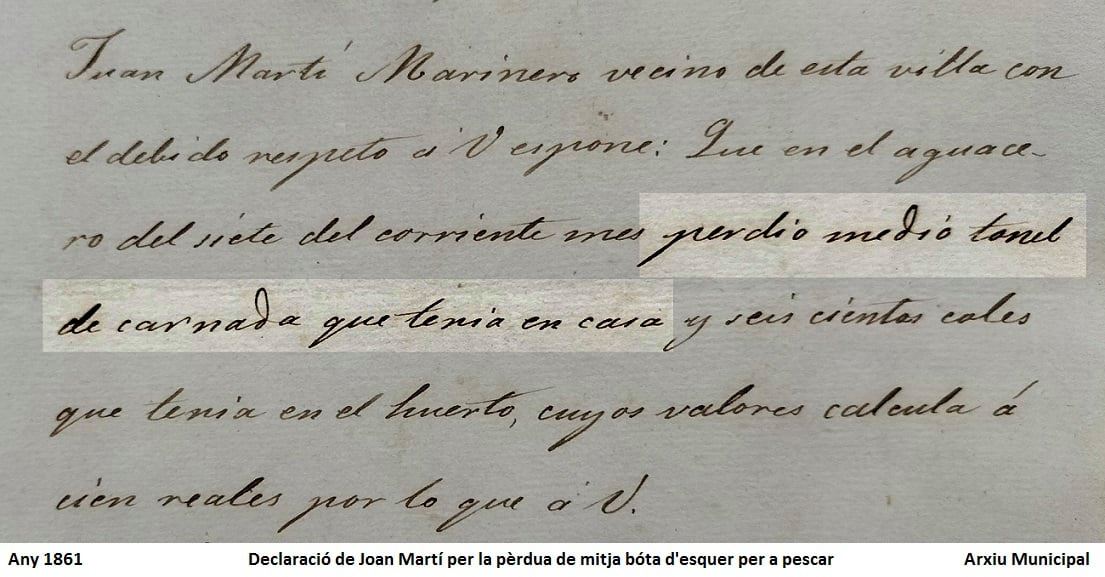 Juan Martí Marinero vecino de esta villa con
el debido respeto á V espone: Que en el aguace-
ro del siete del corriente mes perdio medió tonel
de carnada que tenia en casa y seis cientos coles
que tenia en el huerto, cuyos valores calcula á
cien reales por lo que á V.
Any 1861 Declaració de Joan Martí per la pèrdua de mitja bóta d'esquer per a pescar Arxiu Municipal